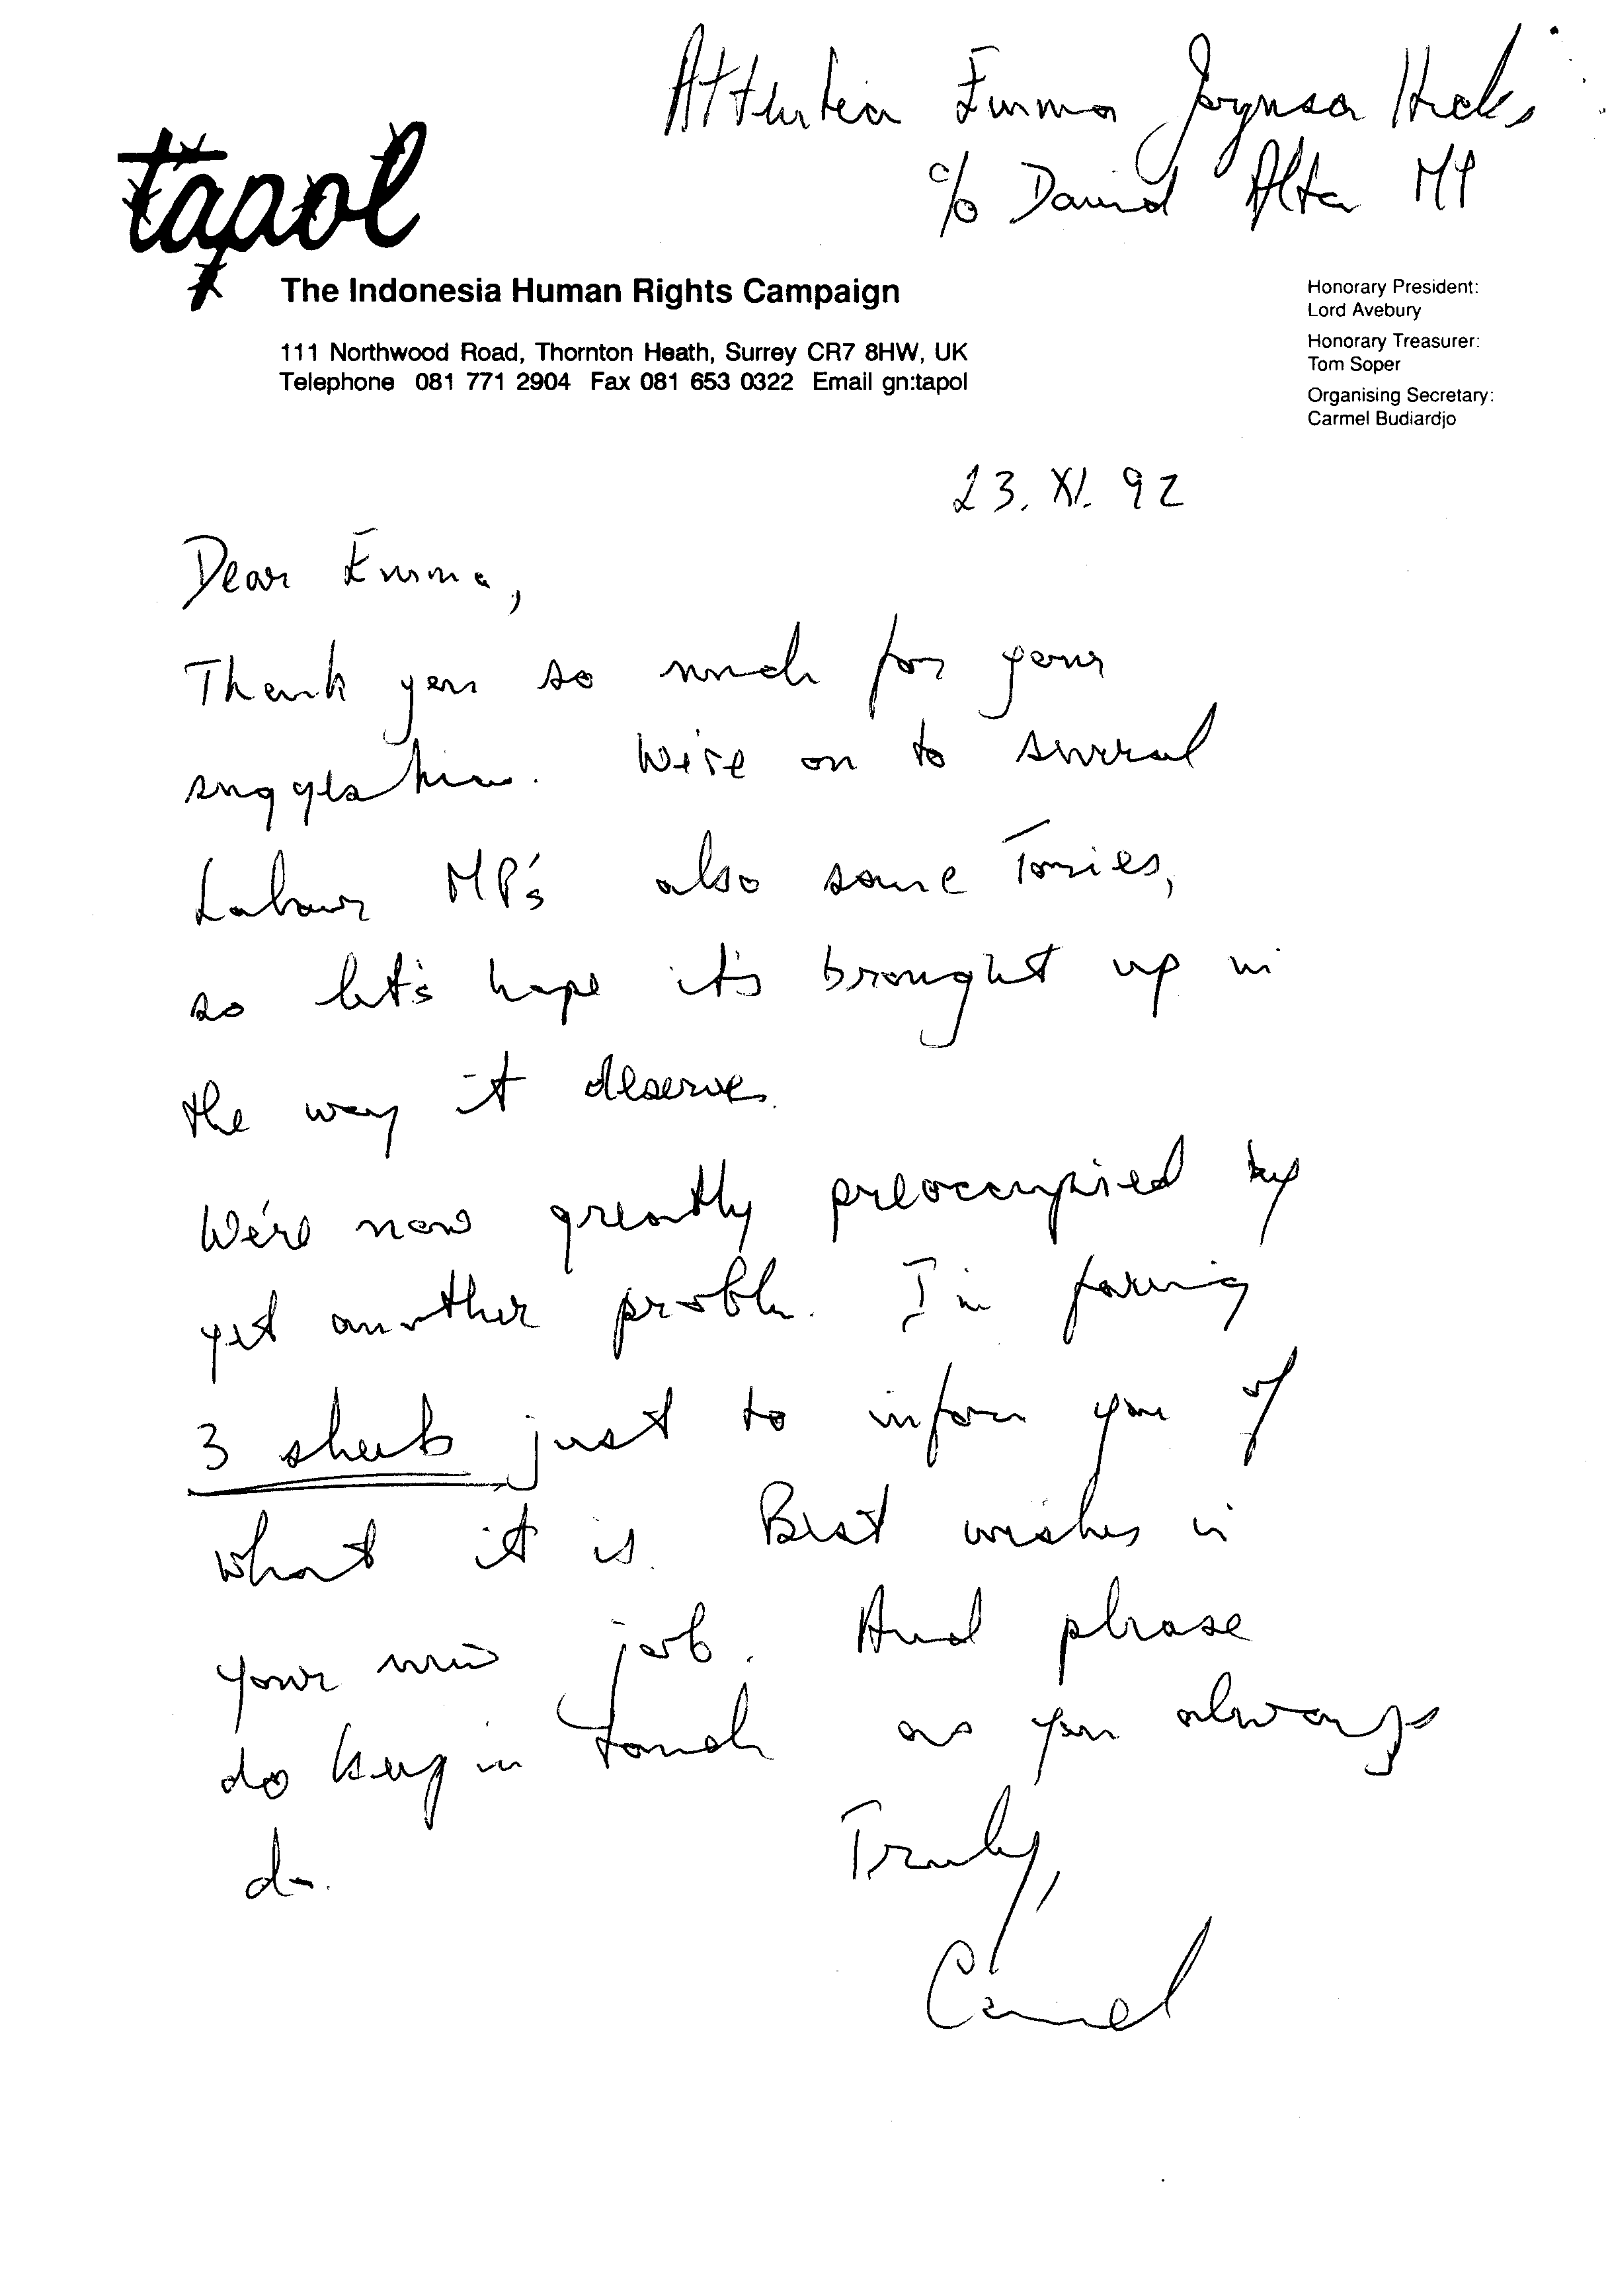 Attention Emma Joynson Hicks
c/o David Alton MP
tapol
The Indonesia Human Rights Campaign
111 Northwood Road, Thornton Heath, Surrey CR7 8HW, UK
Telephone 081 771 2904 Fax 081 653 0322 Email gn:tapol
Honorary President:
Lord Avebury
Honorary Treasurer:
Tom Soper
Organising Secretary:
Carmel Budiardjo
23. XI. 92
Dear Emma,
Thank you so much for your
suggestions. We're on to several
Labour MP's also some Tories,
so let's hope it's brought up in
the way it deserves.
We're now greatly preoccupied by
yet another problem. I'm faxing
3 sheets just to inform you of
what it is. Best wishes in
your new job. And please
do keep in touch as you always
do.
Truly,
Carmel